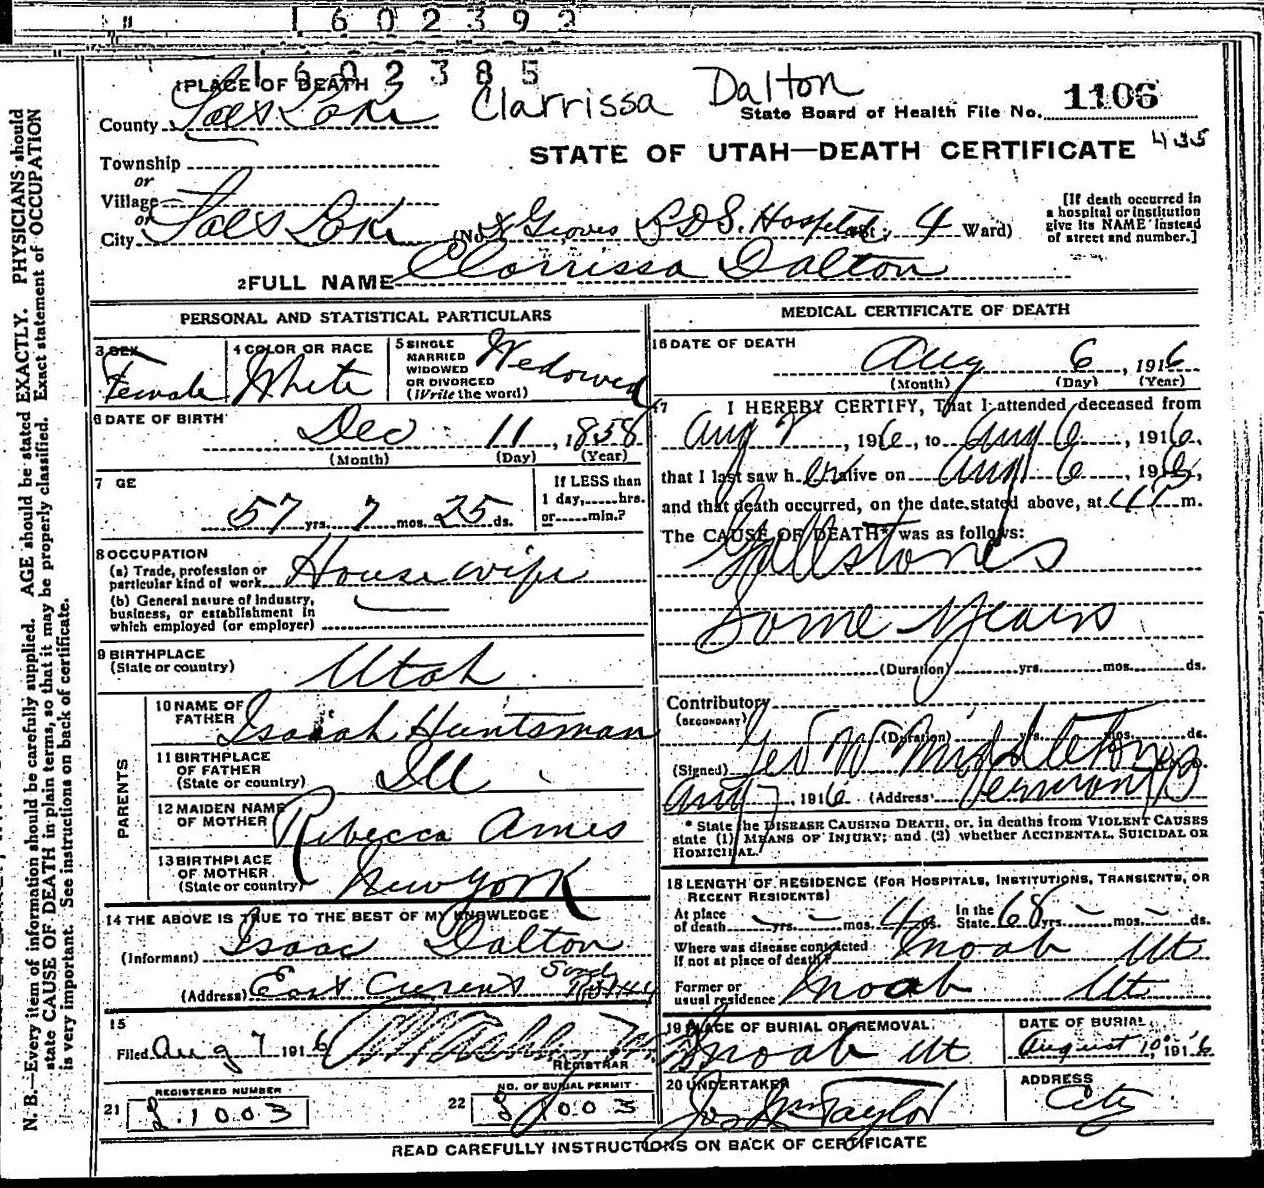 1602392
1602385
1 PLACE OF DEATH
Clarrissa Dalton
County Salt Lake
State Board of Health File No. 1106
STATE OF UTAH—DEATH CERTIFICATE 435
Township
or
Village
or
City Salt Lake (No. Groves LDS. Hospital St.; 4 Ward)
[If death occurred in a hospital or institution give its NAME instead of street and number.]
2 FULL NAME Clarrissa Dalton
PERSONAL AND STATISTICAL PARTICULARS
3 SEX Female
4 COLOR OR RACE White
5 SINGLE MARRIED WIDOWED OR DIVORCED (Write the word) Widowed
6 DATE OF BIRTH Dec 11, 1858
(Month) (Day) (Year)
7 GE 57 yrs. 7 mos. 25 ds.
If LESS than 1 day,......hrs. or......min.?
8 OCCUPATION
(a) Trade, profession or particular kind of work Housewife
(b) General nature of industry, business, or establishment in which employed (or employer)
9 BIRTHPLACE (State or country) Utah
PARENTS
10 NAME OF FATHER Isaiah Huntsman
11 BIRTHPLACE OF FATHER (State or country) Ill
12 MAIDEN NAME OF MOTHER Rebecca Ames
13 BIRTHPLACE OF MOTHER (State or country) New York
14 THE ABOVE IS TRUE TO THE BEST OF MY KNOWLEDGE
(Informant) Isaac Dalton
(Address) East Cresent Sandy
15
Filed Aug 7 1916
REGISTRAR
REGISTERED NUMBER
21 L.1003
NO. OF BURIAL PERMIT
22 1003
MEDICAL CERTIFICATE OF DEATH
16 DATE OF DEATH Aug 6, 1916
(Month) (Day) (Year)
17 I HEREBY CERTIFY, That I attended deceased from
Aug 2, 1916, to Aug 6, 1916,
that I last saw her alive on Aug 6, 1916,
and that death occurred, on the date stated above, at m.
The CAUSE OF DEATH* was as follows:
Gallstones
Some Years
(Duration) yrs. mos. ds.
Contributory
(SECONDARY)
(Duration) yrs. mos. ds.
(Signed) Geo W Middleton
Aug 7, 1916 (Address) Vermont
* State the DISEASE CAUSING DEATH, or, in deaths from VIOLENT CAUSES
state (1) MEANS OF INJURY; and (2) whether ACCIDENTAL, SUICIDAL OR
HOMICIDAL.
18 LENGTH OF RESIDENCE (FOR HOSPITALS, INSTITUTIONS, TRANSIENTS, OR RECENT RESIDENTS)
At place of death yrs. mos. 4 ds. In the State 68 yrs. mos. ds.
Where was disease contracted If not at place of death? Moab Ut
Former or usual residence Moab Ut
19 PLACE OF BURIAL OR REMOVAL Moab Ut
DATE OF BURIAL August 10, 1916
20 UNDERTAKER Jos Wm Taylor
ADDRESS City
READ CAREFULLY INSTRUCTIONS ON BACK OF CERTIFICATE
N. B.—Every item of information should be carefully supplied. AGE should be stated EXACTLY. PHYSICIANS should
state CAUSE OF DEATH in plain terms, so that it may be properly classified. Exact statement of OCCUPATION
is very important. See instructions on back of certificate.